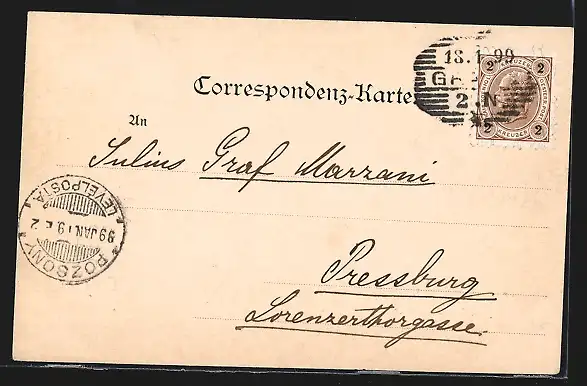 18.1.99
2 N
2 2
KREUZER
2 2
KREUZER
Correspondenz-Karte
An
Julius Graf Marzani
Pressburg
Lorenzerthorgasse
POZSONY
99 JAN 19
LEVÉLPOSTA